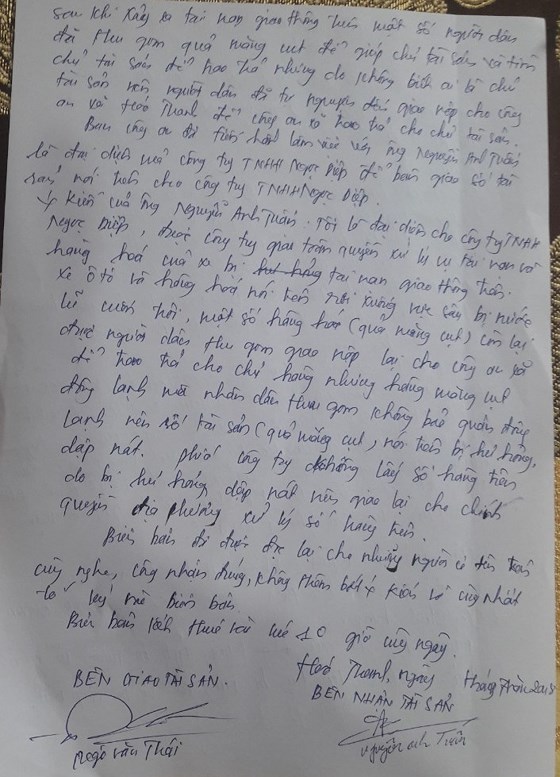 sau khi xảy ra tai nạn giao thông trên một số người dân
đã thu gom quả măng cụt để giúp chủ tài sản và tìm
chủ tài sản để trao trả nhưng do không biết ai là chủ
tài sản nên người dân đã tự nguyện giao nộp cho công
an xã Hoá Thanh để công an xã trao trả cho chủ tài sản.
Ban công an đã tiến hành làm việc với ông Nguyễn Anh Tuấn
là đại diện của công ty TNHH Ngọc Diệp để bàn giao số tài
sản nói trên cho công ty TNHH Ngọc Diệp.
Ý kiến của ông Nguyễn Anh Tuấn. Tôi là đại diện cho công ty TNHH
Ngọc Diệp, được công ty giao toàn quyền xử lý vụ tai nạn và
hàng hoá của xe bị tai nạn giao thông trên.
Xe ô tô và hàng hoá nói trên rơi xuống vực sâu bị nước
lũ cuốn trôi, một số hàng hoá (quả măng cụt) còn lại
được người dân thu gom giao nộp lại cho công an xã
để trao trả cho chủ hàng nhưng hàng măng cụt
đông lạnh mà nhân dân thu gom không bảo quản đông
lạnh nên số tài sản (quả măng cụt) nói trên bị hư hỏng,
dập nát. phía công ty không lấy số hàng trên
do bị hư hỏng dập nát nên giao lại cho chính
quyền địa phương xử lý số hàng trên.
Biên bản đã được đọc lại cho những người có tên trên
cùng nghe, công nhận đúng, không thêm bớt ý kiến và cùng nhất
trí ký vào biên bản.
Biên bản kết thúc vào lúc 10 giờ cùng ngày.
Hoá Thanh, ngày tháng năm 2015
BÊN GIAO TÀI SẢN. BÊN NHẬN TÀI SẢN
Ngô Văn Thái Nguyễn Anh Tuấn